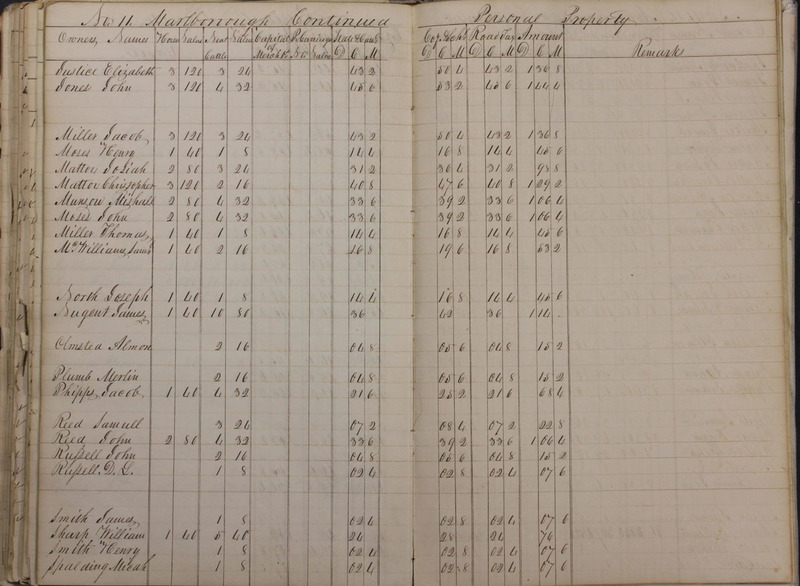 No 11. Marlborough Continued Personal Property
Owners, Names Horses Value Neat Cattle Value Capital of Merch &c P. Carriages No Value State & Canal D C M Co. & Schl D C M Road Tax D C M Amount D C M Remarks
Justice Elizabeth 3 120 3 24 43 2 50 4 43 2 1 36 8
Jones John 3 120 4 32 45 6 53 2 45 6 1 44 4
Miller Jacob 3 120 3 24 43 2 50 4 43 2 1 36 8
Moses Henry 1 40 1 8 14 4 16 8 14 4 45 6
Mattoe Josiah 2 80 3 24 31 2 36 4 31 2 98 8
Mattoe Christopher 3 120 2 16 40 8 47 6 40 8 1 29 2
Munson Mishall 2 80 4 32 33 6 39 2 33 6 1 06 4
Moses John 2 80 4 32 33 6 39 2 33 6 1 06 4
Miller Thomas 1 40 1 8 14 4 16 8 14 4 45 6
McWilliams, James 1 40 2 16 16 8 19 6 16 8 53 2
North Joseph 1 40 1 8 14 4 16 8 14 4 45 6
Nugent James 1 40 10 80 36 42 36 1 14
Olmsted Almon 2 16 04 8 05 6 04 8 15 2
Plumb Merlin 2 16 04 8 05 6 04 8 15 2
Phipps, Jacob 1 40 4 32 21 6 25 2 21 6 68 4
Reed Samuel 3 24 07 2 08 4 07 2 22 8
Reed John 2 80 4 32 33 6 39 2 33 6 1 06 4
Russell John 2 16 04 8 05 6 04 8 15 2
Russell. D. L. 1 8 02 4 02 8 02 4 07 6
Smith James 1 8 02 4 02 8 02 4 07 6
Sharp William 1 40 5 40 24 28 24 76
Smith Henry 1 8 02 4 02 8 02 4 07 6
Spalding Micah 1 8 02 4 02 8 02 4 07 6